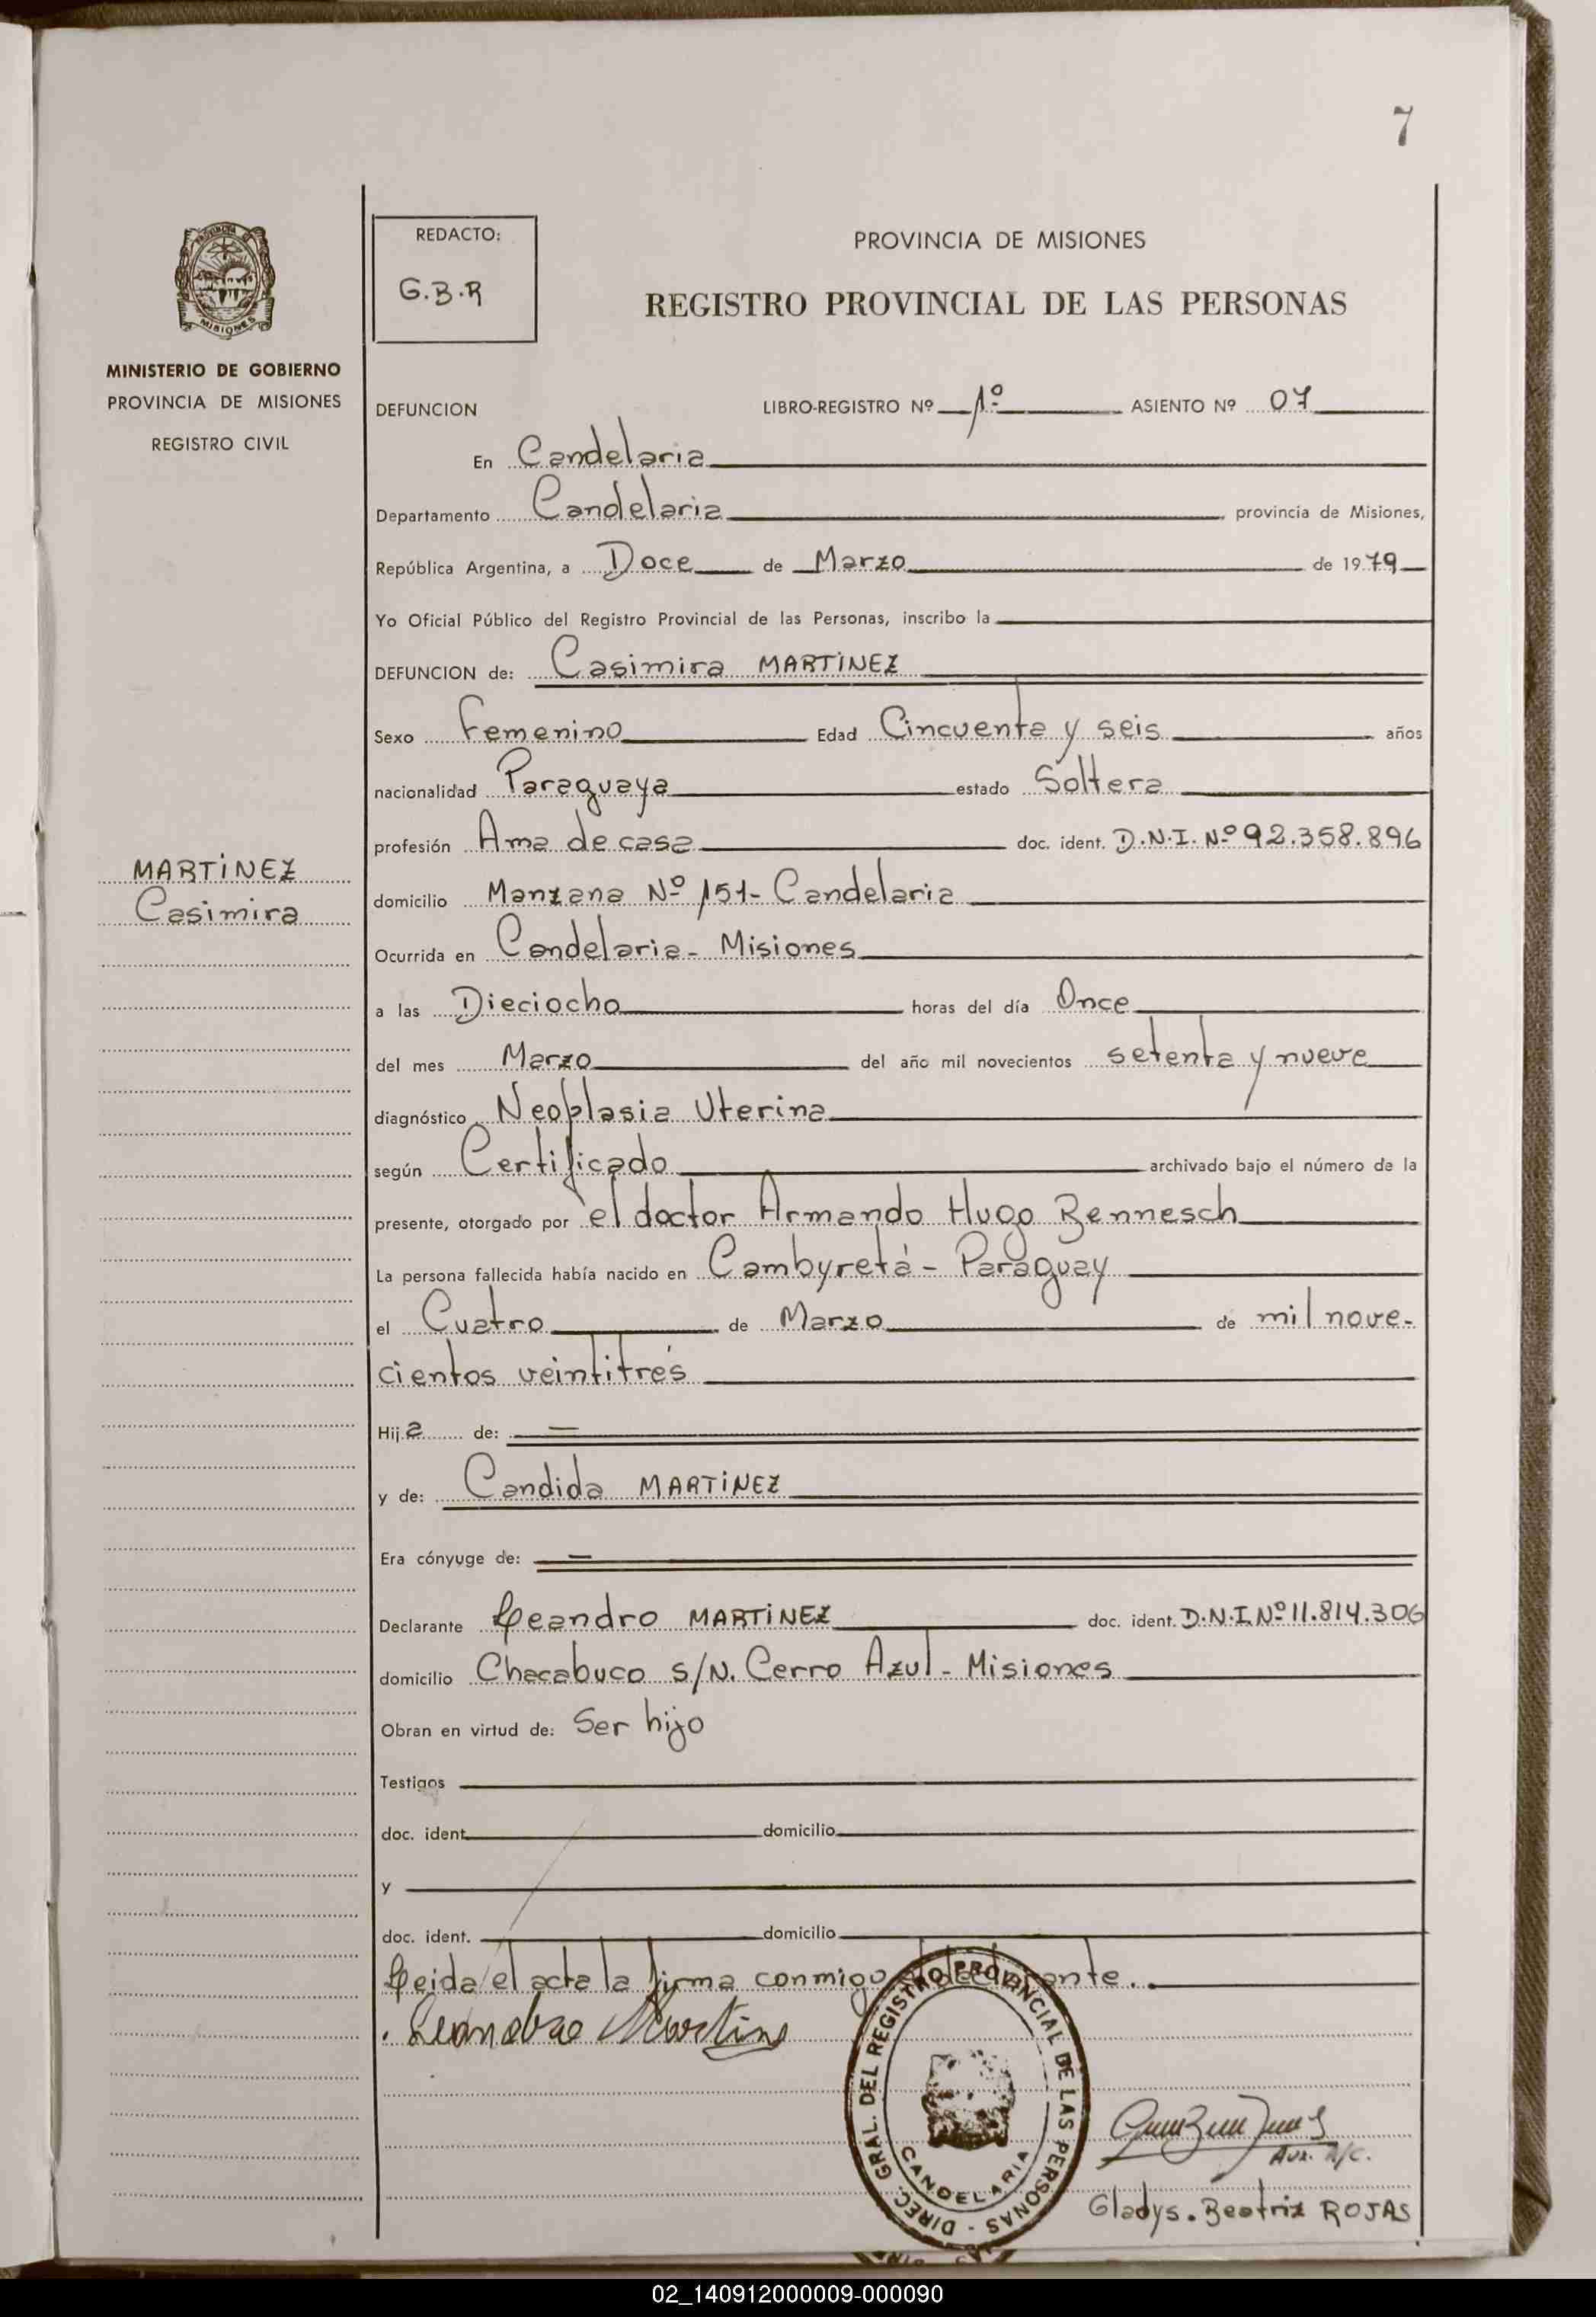 7
PROVINCIA DE MISIONES
MINISTERIO DE GOBIERNO
PROVINCIA DE MISIONES
REGISTRO CIVIL
MARTINEZ
Casimira
REDACTO:
G.B.R
PROVINCIA DE MISIONES
REGISTRO PROVINCIAL DE LAS PERSONAS
DEFUNCION LIBRO-REGISTRO Nº 1º ASIENTO Nº 07
En Candelaria
Departamento Candelaria provincia de Misiones,
República Argentina, a Doce de Marzo de 1979
Yo Oficial Público del Registro Provincial de las Personas, inscribo la
DEFUNCION de: Casimira MARTINEZ
Sexo Femenino Edad Cincuenta y seis años
nacionalidad Paraguaya estado Soltera
profesión Ama de casa doc. ident. D.N.I. Nº 92.358.896
domicilio Manzana Nº 151- Candelaria
Ocurrida en Candelaria - Misiones
a las Dieciocho horas del día Once
del mes Marzo del año mil novecientos setenta y nueve
diagnóstico Neoplasia Uterina
según Certificado archivado bajo el número de la
presente, otorgado por el doctor Armando Hugo Bennesch
La persona fallecida había nacido en Cambyretá - Paraguay
el Cuatro de Marzo de mil nove-
cientos veintitrés
Hija de: —
y de: Candida MARTINEZ
Era cónyuge de: —
Declarante Leandro MARTINEZ doc. ident. D.N.I. Nº 11.814.306
domicilio Chacabuco s/N. Cerro Azul - Misiones
Obran en virtud de: Ser hijo
Testigos
doc. ident. domicilio
y
doc. ident. domicilio
Leida el acta la firma conmigo el declarante.
Leandro Martine
DIREC. GRAL. DEL REGISTRO PROVINCIAL DE LAS PERSONAS -
CANDELARIA
Aux. R/C.
Gladys. Beatriz ROJAS
02_140912000009-000090